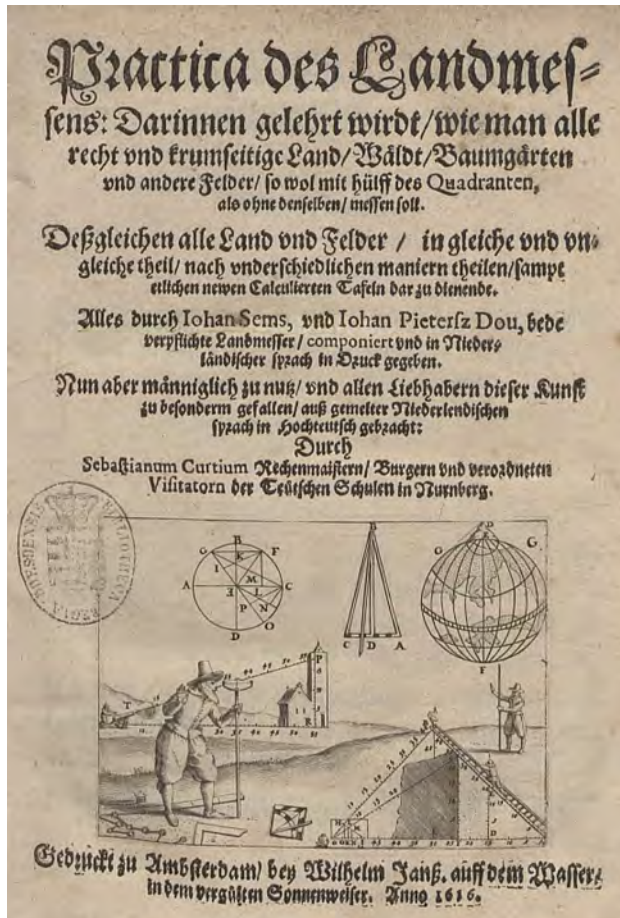 Practica des Landmeſ-
ſens: Darinnen gelehrt wirdt/ wie man alle
recht vnd krumſeitige Land/ Wäldt/ Baumgärten
vnd andere Felder/ ſo wol mit hülff des Quadranten,
als ohne denſelben/ meſſen ſoll.
Deßgleichen alle Land vnd Felder / in gleiche vnd vn-
gleiche theil/ nach vnderſchiedlichen maniern theilen/ ſampt
etlichen newen Calculierten Tafeln dar zu dienende.
Alles durch Iohan Sems, vnd Iohan Pieterſz Dou, bede
verpflichte Landmeſſer/ componiert vnd in Nieder-
ländiſcher ſprach in Druck gegeben.
Nun aber männiglich zu nutz/ vnd allen Liebhabern dieſer Kunſt
zu beſonderm gefallen/ auß gemelter Niederlendiſchen
ſprach in Hochteutſch gebracht:
Durch
Sebaſtianum Curtium Rechenmaiſtern/ Burgern vnd verordneten
Viſitatorn der Teütſchen Schulen in Nurnberg.
B
G F
K
I
M
A E L C
P N
O
D
B
C D A
G
F
T
P
R
Gedruckt zu Ambſterdam/ bey Wilhelm Janß. auff dem Waſſer/
in dem vergülten Sonnenweiſer. Anno 1616.